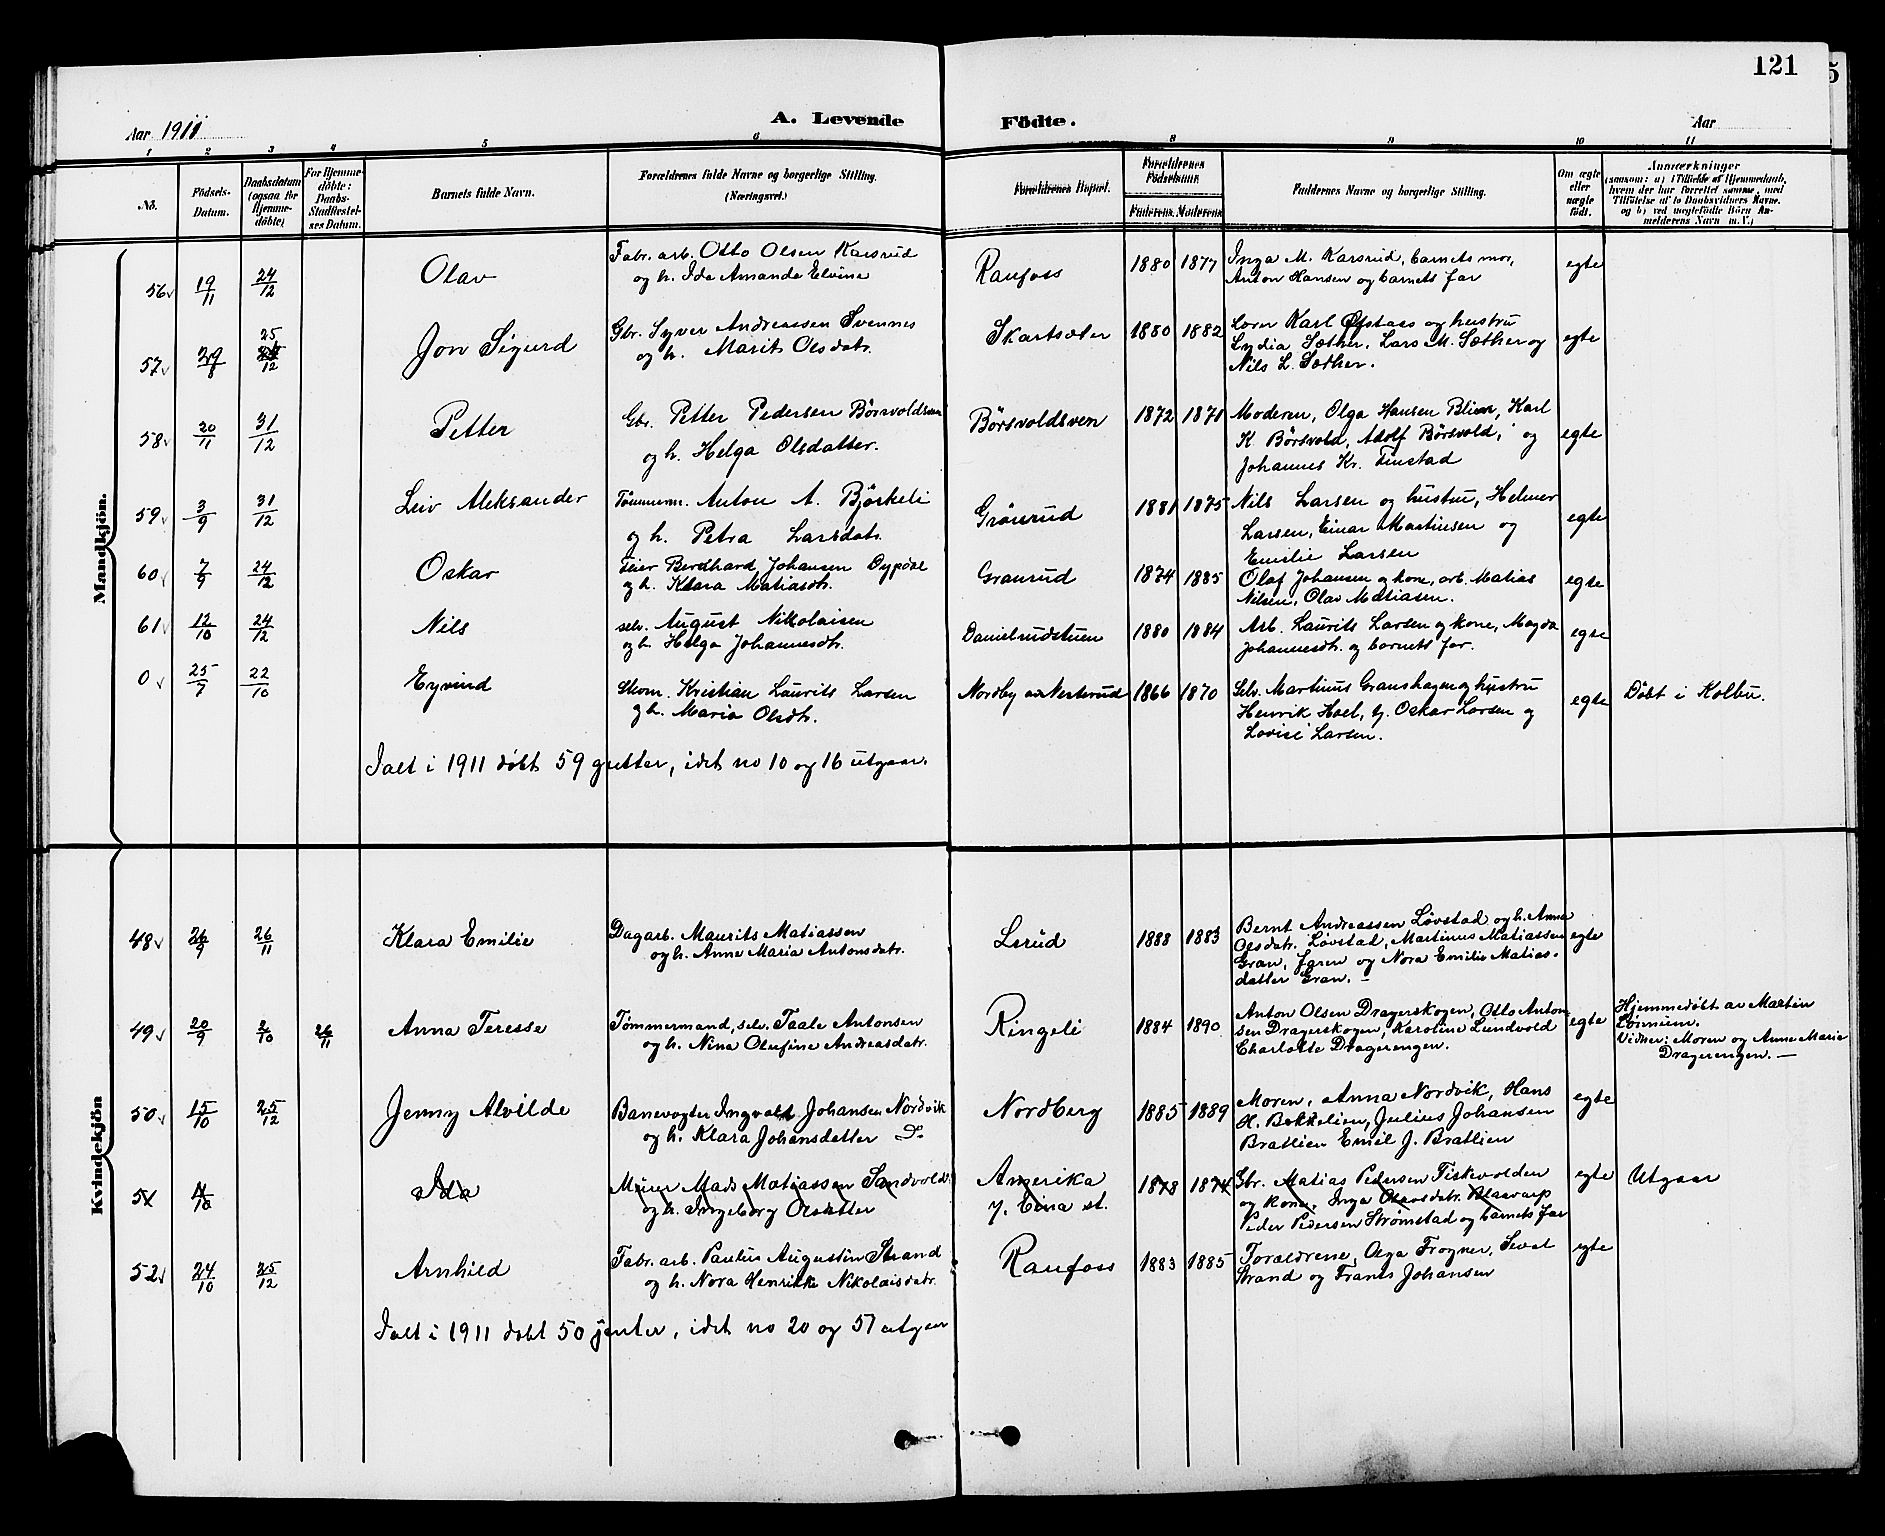 121
5
Aar 1911
A. Levende Födte.
Aar
1 2 3 4 5 6 8 9 10 11
No.
Födsels-
Datum.
Daabsdatum
(ogsaa for
Hjemme-
döbte)
For Hjemme-
döbte:
Daabs-
Stadfæstel-
ses Datum.
Barnets fulde Navn.
Forældrenes fulde Navne og borgerlige Stilling.
(Næringsvei.)
Forældrenes Bopæl.
Forældrenes
Födselsaar
Faderens. Moderens
Faddernes Navne og borgerlige Stilling.
Om ægte
eller
uægte
födt.
Anmærkninger
(saasom: a) i Tilfælde af Hjemmedaab,
hvem der har forrettet samme, med
Tilföielse af to Daabsvidners Navne.
og b) ved uægtefödte Börn An-
melderens Navn m. V.)
Mandkjön.
56 19/11 24/12 Olav
Fabr. arb. Otto Olsen Karsrud
og h. Ida Amanda Elvina
Raufoss 1880 1877
Inga M. Karsrud, barnets mor,
Anton Hansen og barnets far
egte
57 29/8 25/12 Jon Sigurd
Gbr. Syver Andreassen Svennes
og h. Marit Olsdatr.
Skartsæter 1880 1882
Lærer Karl Øfstaas og hustru
Lydia Sæther, Lars M. Sæther og
Nils L. Sæther.
egte
58 20/11 31/12 Petter
Gbr. Petter Pedersen Börsvoldsven
og h. Helga Olsdatter.
Börsvoldsven 1872 1871
Moderen, Olga Hansen Blien, Karl
K Börsvold, Adolf Börsvold, og
Johannes Kr. Finstad
egte
59 3/9 31/12 Leiv Aleksander
Tömmerm. Anton A. Björkeli
og h. Petra Larsdatr.
Grönrud 1881 1875
Nils Larsen og hustru, Helmer
Larsen, Einar Martinsen og
Emilie Larsen
egte
60 7/9 24/12 Oskar
Feier Berdhard Johansen
og h. Klara Matiasdtr.
Granrud 1874 1885
Olaf Johansen og kone, arb. Matias
Nilsen, Olav Matiasen.
egte
61 12/10 24/12 Nils
selv. August Nikolaisen
og h. Helga Johannesdtr.
Danielrudstuen 1880 1884
Arb. Laurits Larsen og kone, Magda
Johannesdtr. og barnets far.
egte
0 25/7 22/10 Eyvind
Skom. Kristian Laurits Larsen
og h. Maria Olsdtr.
Nordby av Nesterud 1866 1870
Selv. Martinus Granshagen og hustru
Henrik Hoel, y. Oskar Larsen og
Lovise Larsen.
egte Döbt i Kolbu.
Ialt i 1911 döbt 59 gutter, idet no 10 og 16 utgaar.
Kvindekjön
48 26/9 26/11 Klara Emilie
Dagarb. Maurits Matiassen
og h. Anne Maria Antonsdatr.
Lerud 1888 1883
Bernt Andreassen Lövstad og h. Anna
Olsdatr. Lövstad, Martinus Matiassen
Gran, fgren og Nora Emilie Matias-
datter Gran. –
egte
49 20/9 2/10 26/11 Anna Teresse
Tömmermand, selv. Taale Antonsen
og h. Nina Olufine Andreasdatr.
Ringeli 1884 1890
Anton Olsen Dragerskogen, Otto Anton-
sen Dragerskogen, Karoline Lundvold
Charlotte Dragerengen.
egte
Hjemmedöbt av Martin
Vidner: Moren og Anne Marie
Dragerengen. –
50 15/10 25/12 Jenny Alvilde
Banevogter Ingvald Johansen Nordvik
og h. Klara Johansdatter
Nordberg 1885 1889
Moren, Anna Nordvik, Hans
H. Bakkelien, Julius Johansen
Bratlien Emil J. Bratlien
egte
51 4/10 Ida
Murer Mads Matiassen Sandvold
og h. Ingeborg Olsdatter
Amerika
y. Eina st. 1878 1874
Gbr. Matias Pedersen Fiskevolden
og kone, Inga Olavsdatr. Blaavarp
Peder Pedersen Strömstad og barnets far
egte Utgaar
52 24/10 25/12 Arnhild
Fabr. arb. Paulus Augustin Strand
og h. Nora Henrikke Nikolaisdatr.
Raufoss 1883 1885
Foraldrene, Olga Frogner, Sevat
Strand og Frants Johansen
egte
Ialt i 1911 döbt 50 jenter, idet no 20 og 51 utgaar